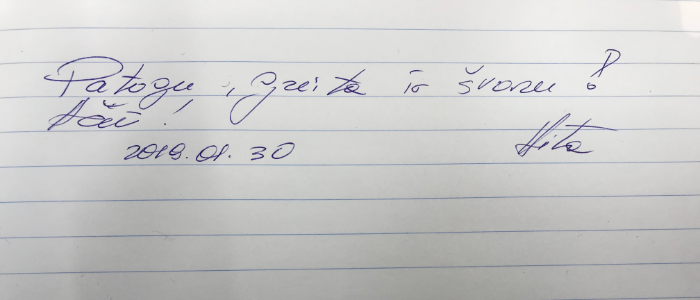 Patogu, greita ir švaru!
Ačiū!
2019.01.30